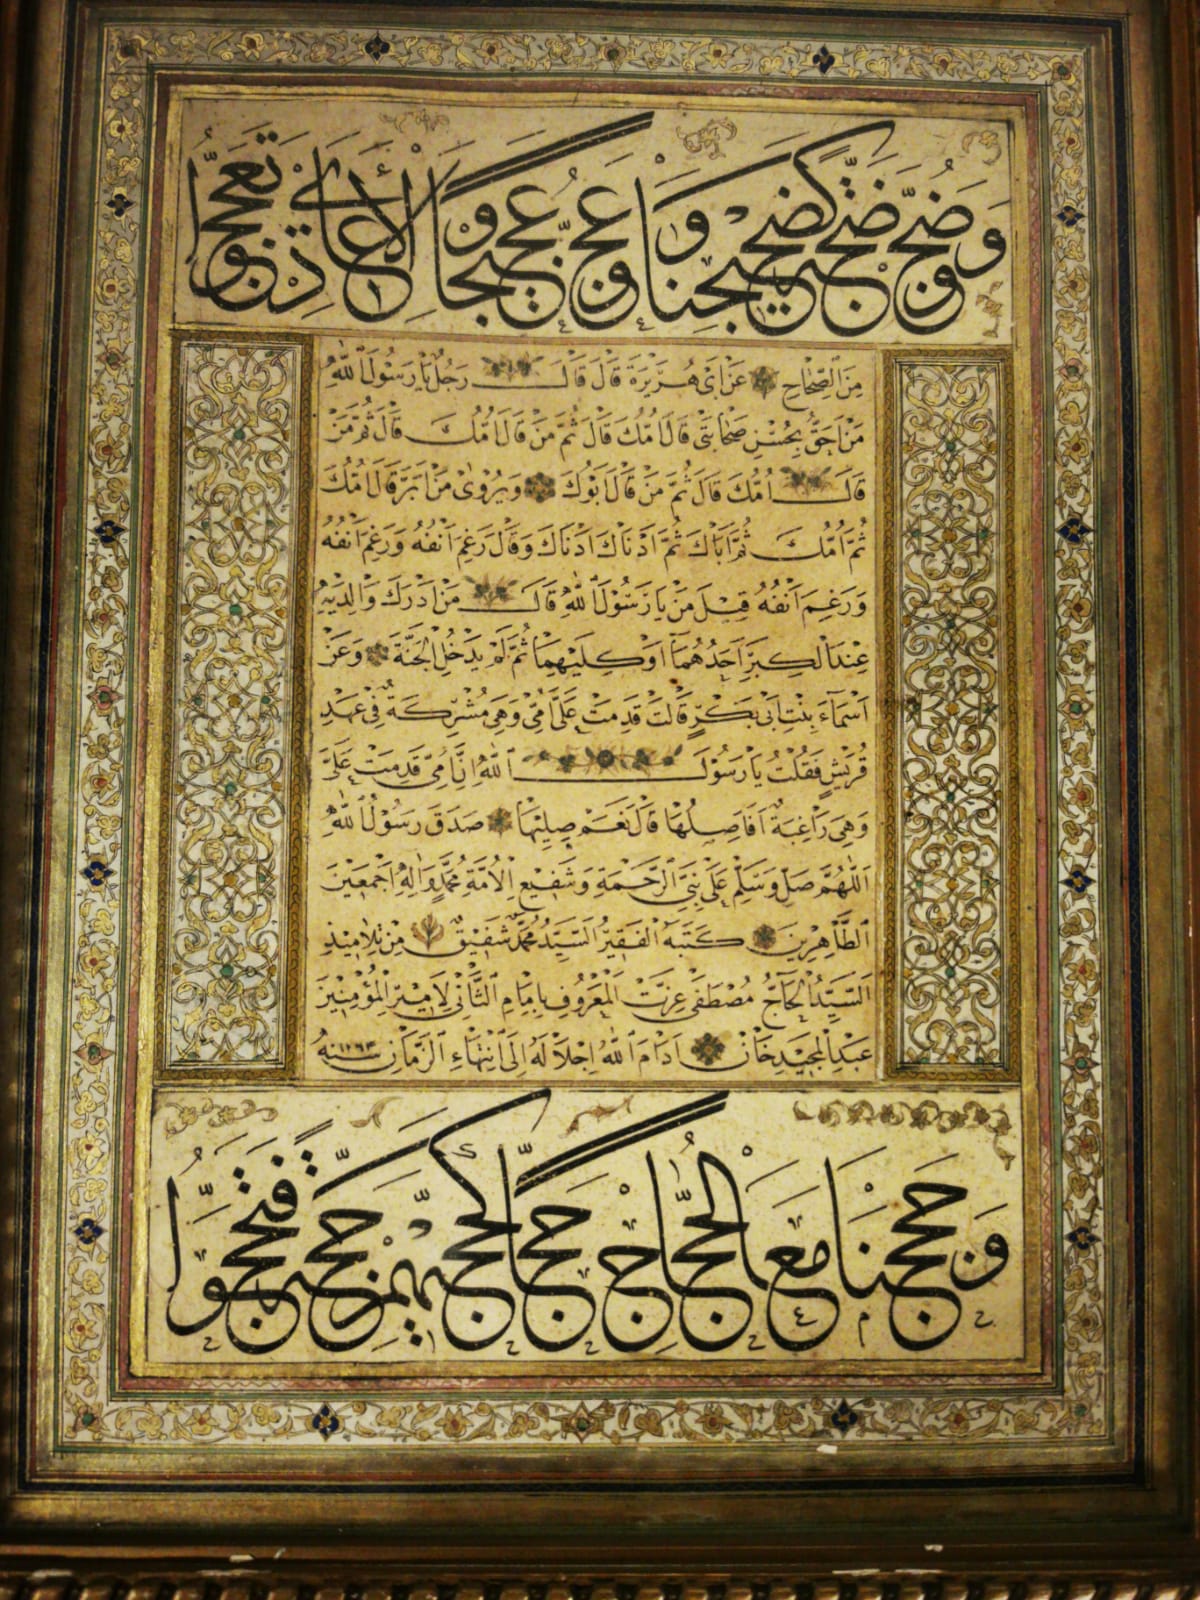 مِنَ الصِّحَاحِ عَنْ اَبِى هُرَيْرَةَ قَالَ قَالَ رَجُلٌ يَا رَسُولَ اللّٰهِ
مَنْ اَحَقُّ بِحُسْنِ صَحَابَتِى قَالَ اُمُّكَ قَالَ ثُمَّ مَنْ قَالَ اُمُّكَ قَالَ ثُمَّ مَنْ
قَالَ اُمُّكَ قَالَ ثُمَّ مَنْ قَالَ اَبُوكَ وَيُرْوٰى مَنْ اَبَرُّ قَالَ اُمُّكَ
ثُمَّ اُمُّكَ ثُمَّ اَبَاكَ ثُمَّ اَدْنَاكَ اَدْنَاكَ وَقَالَ رَغِمَ اَنْفُهُ وَرَغِمَ اَنْفُهُ
وَرَغِمَ اَنْفُهُ قِيلَ مَنْ يَا رَسُولَ اللّٰهِ قَالَ مَنْ اَدْرَكَ وَالِدَيْهِ
عِنْدَ الْكِبَرِ اَحَدُهُمَا اَوْ كِلَيْهِمَا ثُمَّ لَمْ يَدْخُلِ الْجَنَّةَ وَعَنْ
اَسْمَآءَ بِنْتِ اَبِى بَكْرٍ قَالَتْ قَدِمَتْ عَلَىَّ اُمِّى وَهِىَ مُشْرِكَةٌ فِى عَهْدِ
قُرَيْشٍ فَقُلْتُ يَا رَسُولَ اللّٰهِ اِنَّ اُمِّى قَدِمَتْ عَلَىَّ
وَهِىَ رَاغِبَةٌ اَفَاَصِلُهَا قَالَ نَعَمْ صِلِيْهَا صَدَقَ رَسُولُ اللّٰهِ
اَللّٰهُمَّ صَلِّ وَسَلِّمْ عَلٰى نَبِىِّ الرَّحْمَةِ وَشَفِيعِ الْاُمَّةِ مُحَمَّدٍ وَاٰلِهِ اَجْمَعِينَ
الطَّاهِرِينَ كَتَبَهُ الْفَقِيرُ السَّيِّدُ مُحَمَّدْ شَفِيقْ مِنْ تَلَامِيذِ
السَّيِّدِ الْحَاجِّ مُصْطَفٰى عِزَّتْ الْمَعْرُوفِ بِاِمَامِ الثَّانِى لِاَمِيرِ الْمُؤْمِنِينَ
عَبْدِ الْمَجِيدِ خَانْ اَدَامَ اللّٰهُ اِجْلَالَهُ اِلٰى اِنْتِهَاءِ الزَّمَانِ سنه ١٢٦٣
وَحَجَجْنَا مَعَ الْحُجَّاجِ حَجًّا كَحَجِّهِمْ